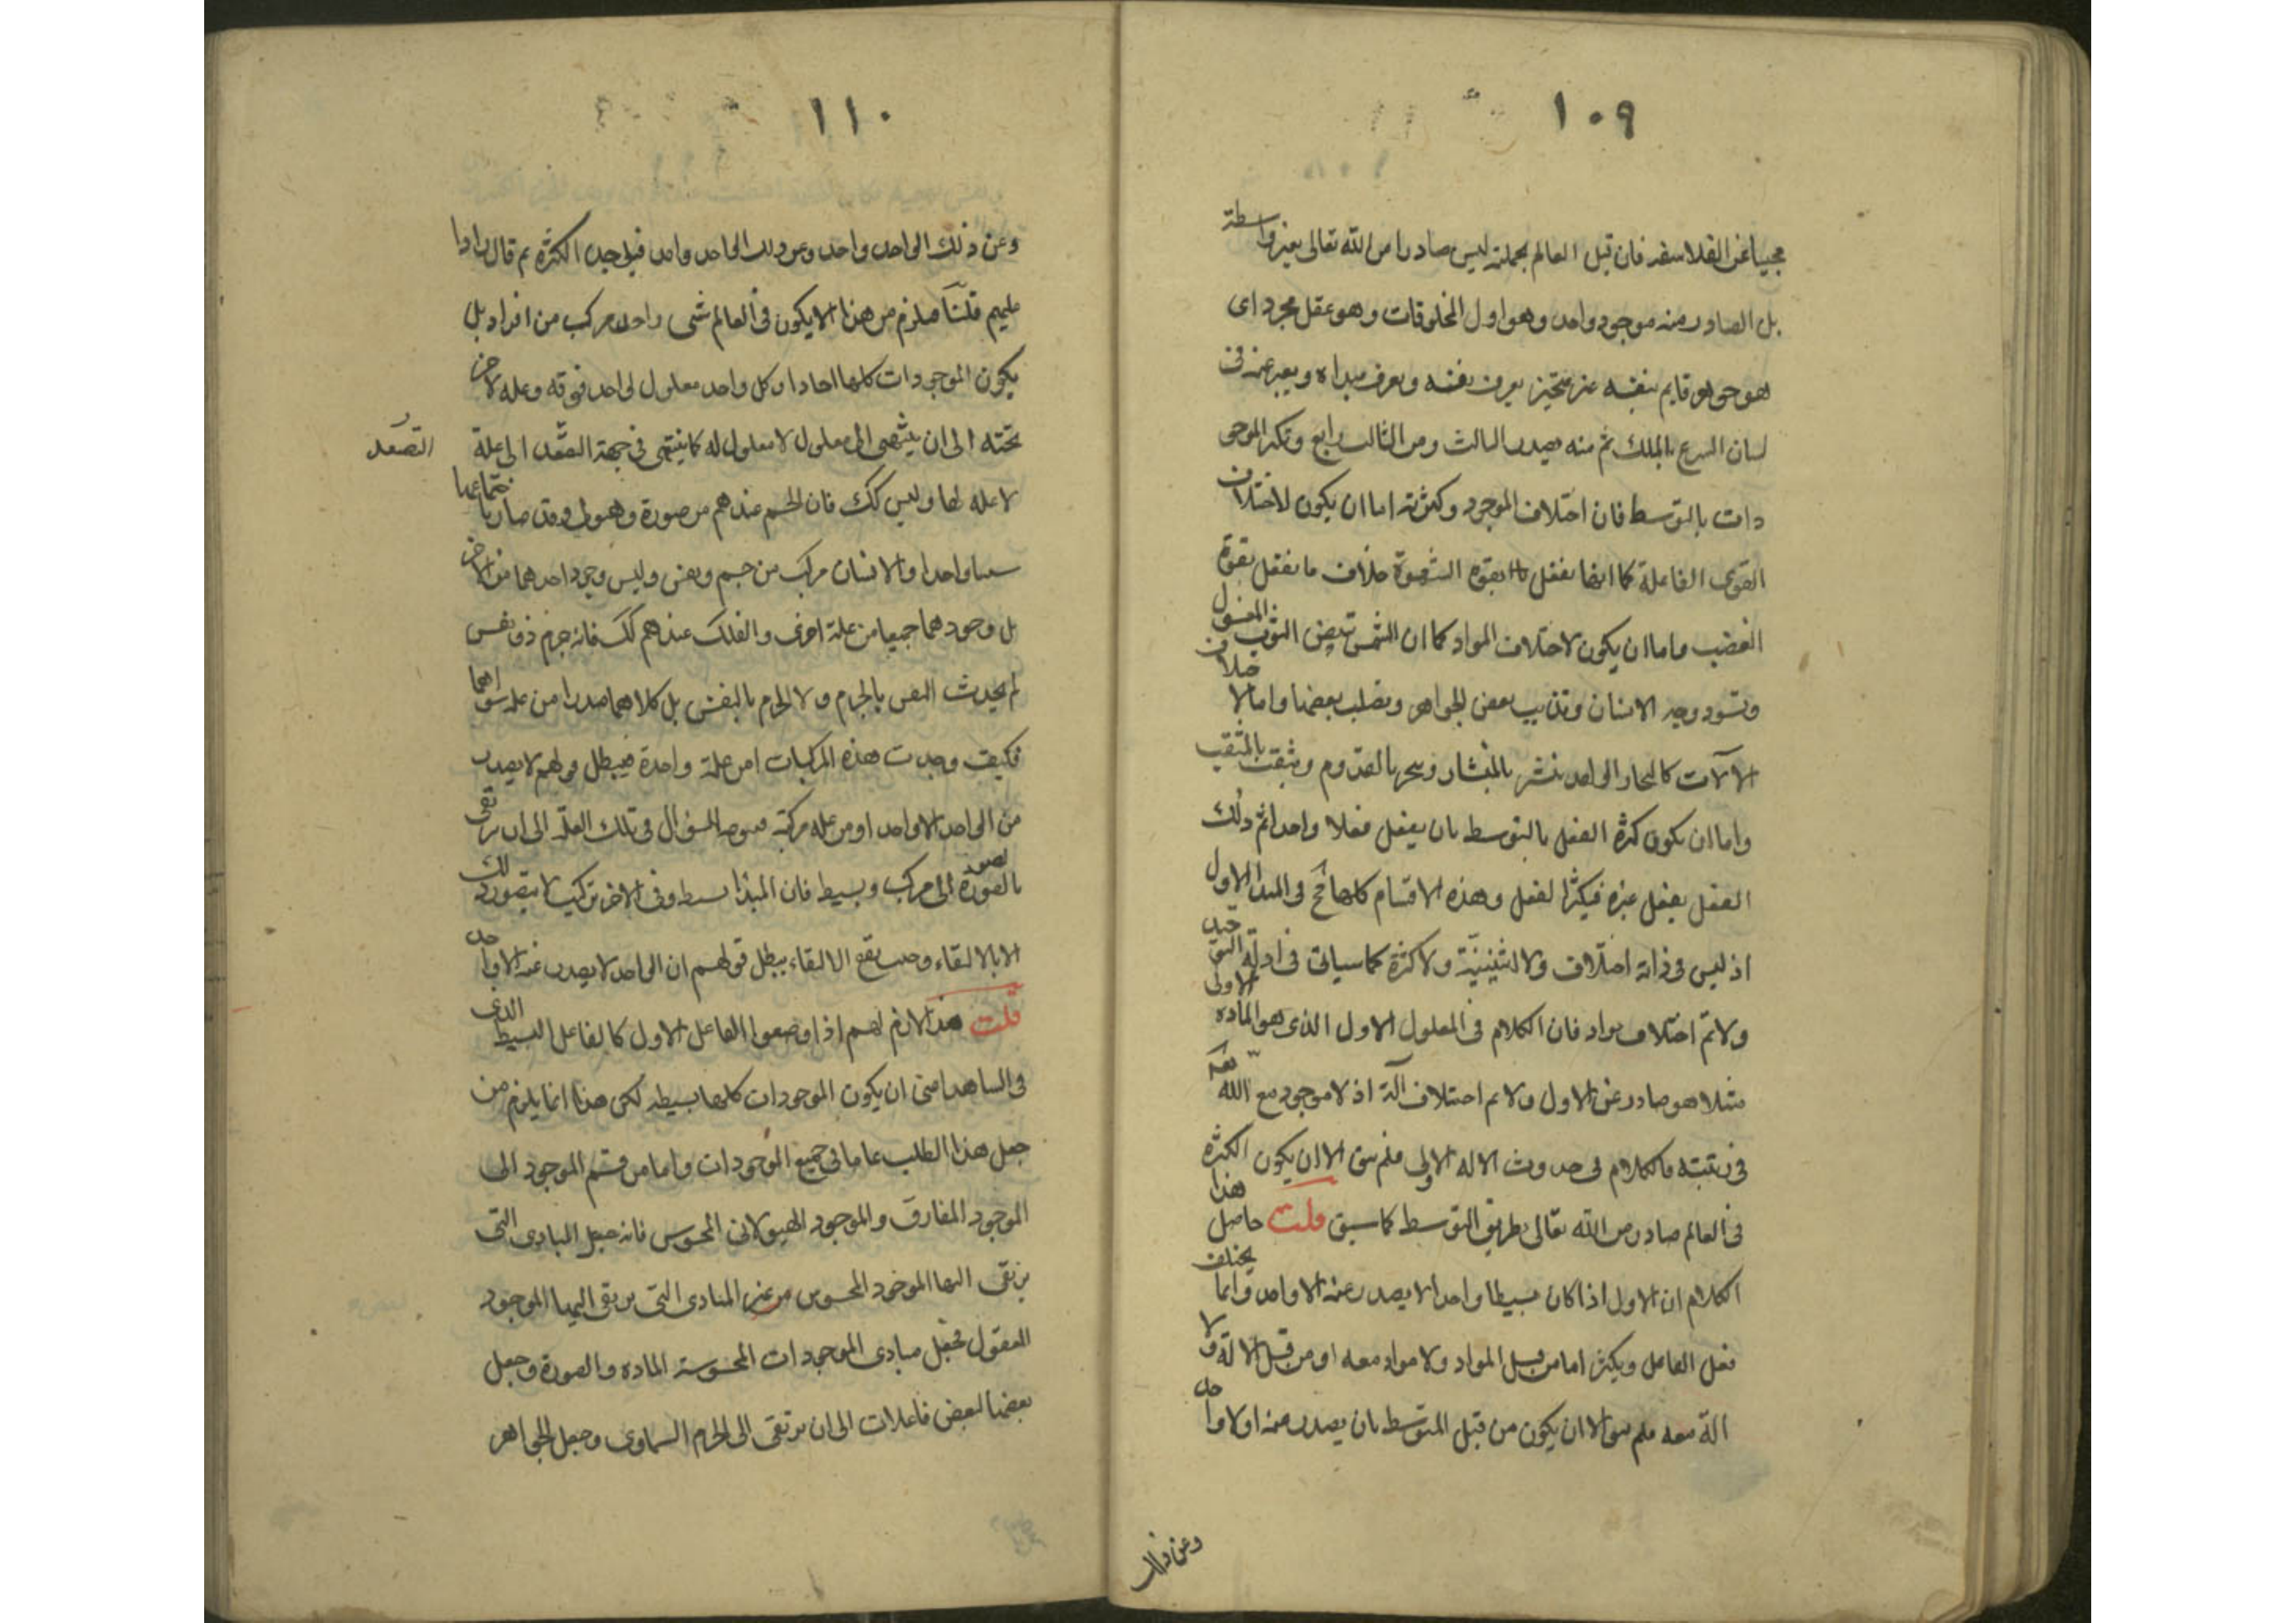 ١٠٩
مجيبا عن الفلاسفه فان قيل العالم بجملته ليس صادرا من الله تعالى بغير واسطة
بل الصادر منه موجود واحد وهو اول المخلوقات وهو عقل مجرد اى
هو جوهر قايم بنفسه غير متحيز يعرف نفسه ويعرف مبداه ويعبر عنه فى
لسان الشرع بالملك ثم منه يصدر الثالث ومن الثالث رابع وتكثر الموجو
دات بالتوسط فان اختلاف الموجود وكثرته اما ان يكون لاختلاف
القوى الفاعلة كما انا نفعل بقوه الشهوة خلاف ما نفعل بقوة
الغضب واما ان يكون لاختلاف المواد كما ان الشمس تبيض الثوب المغسول
وتسود وجه الانسان وتذيب بعض الجواهر وتصلب بعضها واما لاختلاف
الآلات كالنجار الواحد ينشر بالمنشار وينحر بالقدوم ويثقب بالمثقب
واما ان يكون كثرة الفعل بالتوسط بان يفعل فعلا واحدا ثم ذلك
الفعل يفعل غيره فيكثر الفعل وهذه الاقسام كلها مح فى المبدا الاول
اذ ليس فى ذاته اختلاف ولا اثنينية ولا كثرة كما سياتى فى ادلة التوحيد
ولا ثم اختلاف مواد فان الكلام فى المعلول الاول الذى هو المادة الاولى
مثلا هو صادر عن الاول ولا ثم اختلاف آلة اذ لا موجود مع الله تعه
فى رتبته فالكلام فى حدوث الاله الاولى فلم يبق الا ان يكون الكثرة
فى العالم صادر من الله تعالى بطريق التوسط كما سبق قلت حاصل هذا
الكلام ان الاول اذا كان بسيطا واحدا لا يصدر عنه الا واحد وانما يختلف
فعل الفاعل ويكثر اما من قبل المواد ولا مواد معه او من قبل الالة ولا
الة معه فلم يبق الا ان يكون من قبل المتوسط بان يصدر عنه اولا واحد
وعن ذلك
١١٠
وعن ذلك الواحد واحد وعن ذلك الواحد واحد فيوجد الكثرة ثم قال رادا
عليهم قلنا فيلزم من هذا الا يكون فى العالم شى واحد مركب من افراد بل
يكون الموجودات كلها احادا وكل واحد معلول لواحد فوقه وعله لاخر
تحته الى ان ينتهى الى معلول لا معلول له كما ينتهى فى جهة التصعد الى علة
التصعد
لا عله لها وليس كك فان الجسم عندهم من صورة وهيولى وقد صار باجتماعهما
سيا واحدا والانسان مركب من جسم ونفس وليس وجود احدهما من الاخر
بل وجودهما جميعا من علة اخرى والفلك عندهم كك فانه جرم ذو نفس
لم يحدث النفس بالجرم ولا الجرم بالنفس بل كلاهما صدرا من علة سواهما
فكيف وجدت هذه المركبات امن علة واحدة فيبطل قولهم لا يصدر
من الواحد الا واحد او من عله مركبة فيتوجه السوال فى تلك العلة الى ان يرتقى
بالضرورة الى مركب وبسيط فان المبدا بسيط وفى الاخر تركيب لا يتصور ذلك
الا بالالتقاء وحيث يقع الالتقاء يبطل قولهم ان الواحد لا يصدر عنه الا واحد
قلت هذا لازم لهم اذا وضعوا الفاعل الاول كالفاعل البسيط الذى
فى الشاهد اعنى ان يكون الموجودات كلها بسيطه لكن هذا انما يلزم من
جعل هذا الطلب عاما فى جميع الموجودات واما من قسم الموجود الى
الموجود المفارق والموجود الهيولانى المحسوس فانه جعل المبادى التى
يرتقى اليها الموجود المحسوس من غير المبادى التى يرتقى اليها الموجود
المعقول فجعل مبادى الموجودات المحسوسة الماده والصورة وجعل
بعضها لبعض فاعلات الى ان يرتقى الى الجرم السماوى وجعل الجواهر